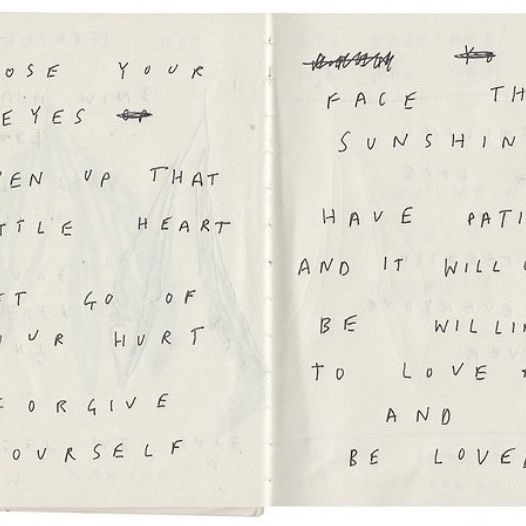 OSE YOUR
EYES
PEN UP THAT
TTLE HEART
ET GO OF
OUR HURT
FORGIVE
OURSELF
FACE TH
SUNSHIN
HAVE PATI
AND IT WILL
BE WILLIN
TO LOVE
AND
BE LOVED